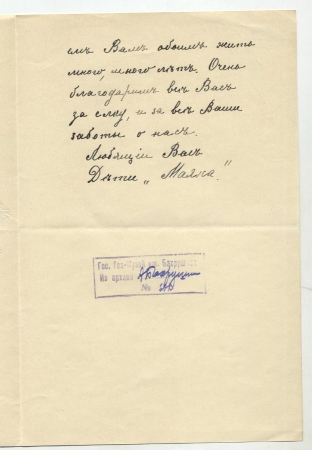 емъ Вамъ обоимъ жить
много, много лѣтъ. Очень
благодаримъ всѣ Васъ
за елку, и за всѣ Ваши
заботы о насъ.
Любящiе Васъ
Дѣти „Маяка."
Гос. Теа-Музей им. Бахруш
Из архива А Бахрушин
№